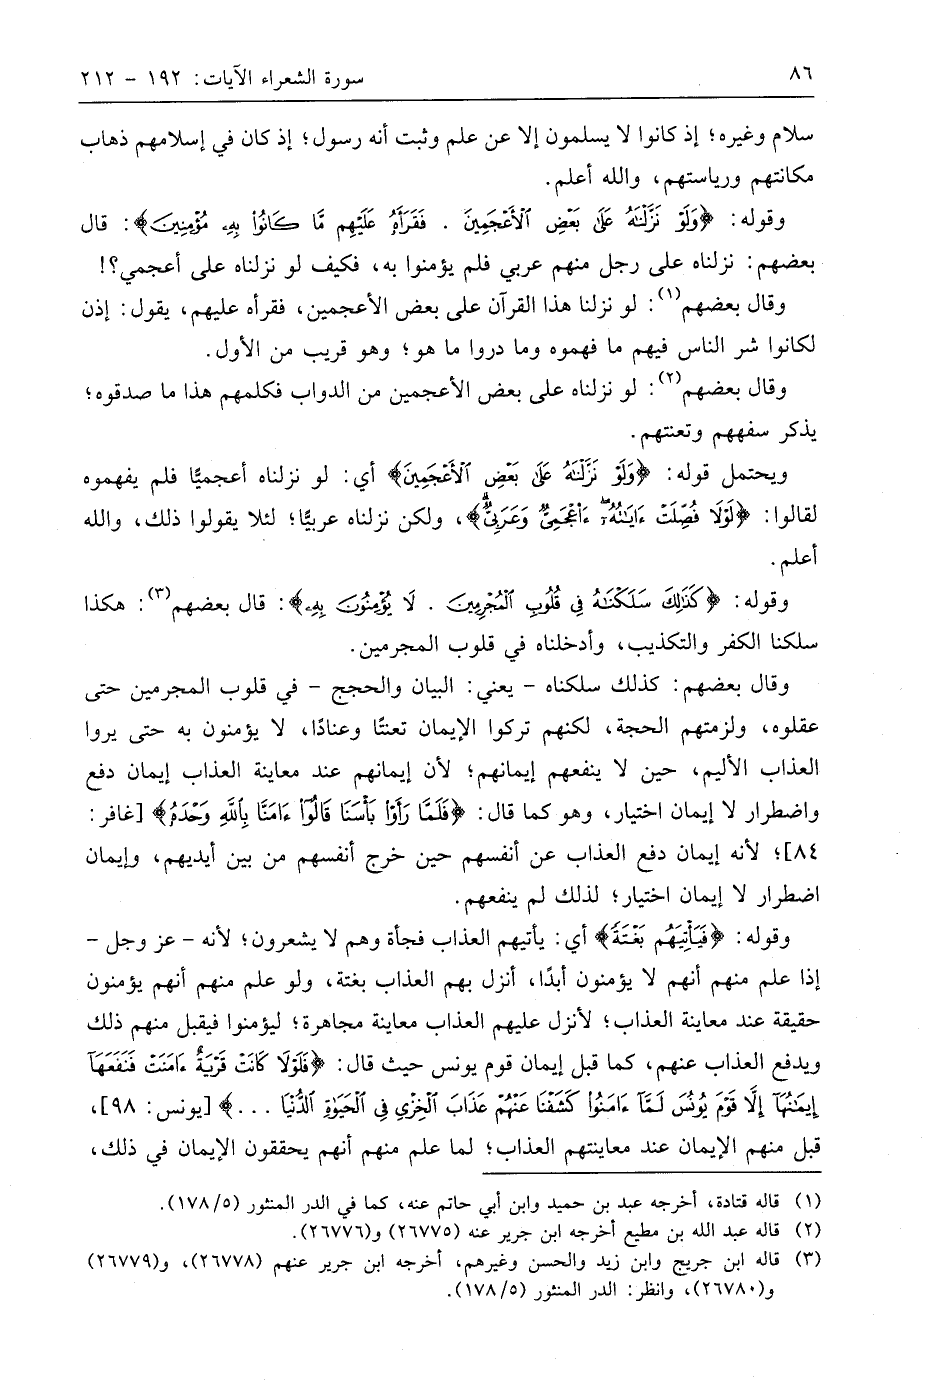 ٨٦ سورة الشعراء الآيات: ١٩٢ - ٢١٢
سلام وغيره؛ إذ كانوا لا يسلمون إلا عن علم وثبت أنه رسول؛ إذ كان في إسلامهم ذهاب
مكانتهم ورياستهم، والله أعلم.
وقوله: ﴿وَلَوْ نَزَّلْنَٰهُ عَلَىٰ بَعْضِ ٱلْأَعْجَمِينَ . فَقَرَأَهُۥ عَلَيْهِم مَّا كَانُوا۟ بِهِۦ مُؤْمِنِينَ﴾: قال
بعضهم: نزلناه على رجل منهم عربي فلم يؤمنوا به، فكيف لو نزلناه على أعجمي؟!
وقال بعضهم(١): لو نزلنا هذا القرآن على بعض الأعجمين، فقرأه عليهم، يقول: إذن
لكانوا شر الناس فيهم ما فهموه وما دروا ما هو؛ وهو قريب من الأول.
وقال بعضهم(٢): لو نزلناه على بعض الأعجمين من الدواب فكلمهم هذا ما صدقوه؛
يذكر سفههم وتعنتهم.
ويحتمل قوله: ﴿وَلَوْ نَزَّلْنَٰهُ عَلَىٰ بَعْضِ ٱلْأَعْجَمِينَ﴾ أي: لو نزلناه أعجميًّا فلم يفهموه
لقالوا: ﴿لَوْلَا فُصِّلَتْ ءَايَٰتُهُۥٓ ءَا۬عْجَمِىٌّ وَعَرَبِىٌّ﴾، ولكن نزلناه عربيًّا؛ لئلا يقولوا ذلك، والله
أعلم.
وقوله: ﴿كَذَٰلِكَ سَلَكْنَٰهُ فِى قُلُوبِ ٱلْمُجْرِمِينَ . لَا يُؤْمِنُونَ بِهِۦ﴾: قال بعضهم(٣): هكذا
سلكنا الكفر والتكذيب، وأدخلناه في قلوب المجرمين.
وقال بعضهم: كذلك سلكناه - يعني: البيان والحجج - في قلوب المجرمين حتى
عقلوه، ولزمتهم الحجة، لكنهم تركوا الإيمان تعنتًا وعنادًا، لا يؤمنون به حتى يروا
العذاب الأليم، حين لا ينفعهم إيمانهم؛ لأن إيمانهم عند معاينة العذاب إيمان دفع
واضطرار لا إيمان اختيار، وهو كما قال: ﴿فَلَمَّا رَأَوْا۟ بَأْسَنَا قَالُوٓا۟ ءَامَنَّا بِٱللَّهِ وَحْدَهُۥ﴾ [غافر:
٨٤]؛ لأنه إيمان دفع العذاب عن أنفسهم حين خرج أنفسهم من بين أيديهم، وإيمان
اضطرار لا إيمان اختيار؛ لذلك لم ينفعهم.
وقوله: ﴿فَيَأْتِيَهُم بَغْتَةً﴾ أي: يأتيهم العذاب فجأة وهم لا يشعرون؛ لأنه - عز وجل -
إذا علم منهم أنهم لا يؤمنون أبدًا، أنزل بهم العذاب بغتة، ولو علم منهم أنهم يؤمنون
حقيقة عند معاينة العذاب؛ لأنزل عليهم العذاب معاينة مجاهرة؛ ليؤمنوا فيقبل منهم ذلك
ويدفع العذاب عنهم، كما قبل إيمان قوم يونس حيث قال: ﴿فَلَوْلَا كَانَتْ قَرْيَةٌ ءَامَنَتْ فَنَفَعَهَآ
إِيمَٰنُهَآ إِلَّا قَوْمَ يُونُسَ لَمَّآ ءَامَنُوا۟ كَشَفْنَا عَنْهُمْ عَذَابَ ٱلْخِزْىِ فِى ٱلْحَيَوٰةِ ٱلدُّنْيَا ...﴾ [يونس: ٩٨]،
قبل منهم الإيمان عند معاينتهم العذاب؛ لما علم منهم أنهم يحققون الإيمان في ذلك،
(١) قاله قتادة، أخرجه عبد بن حميد وابن أبي حاتم عنه، كما في الدر المنثور (١٧٨/٥).
(٢) قاله عبد الله بن مطيع أخرجه ابن جرير عنه (٢٦٧٧٥) و(٢٦٧٧٦).
(٣) قاله ابن جريج وابن زيد والحسن وغيرهم، أخرجه ابن جرير عنهم (٢٦٧٧٨)، و(٢٦٧٧٩)
و(٢٦٧٨٠)، وانظر: الدر المنثور (١٧٨/٥).